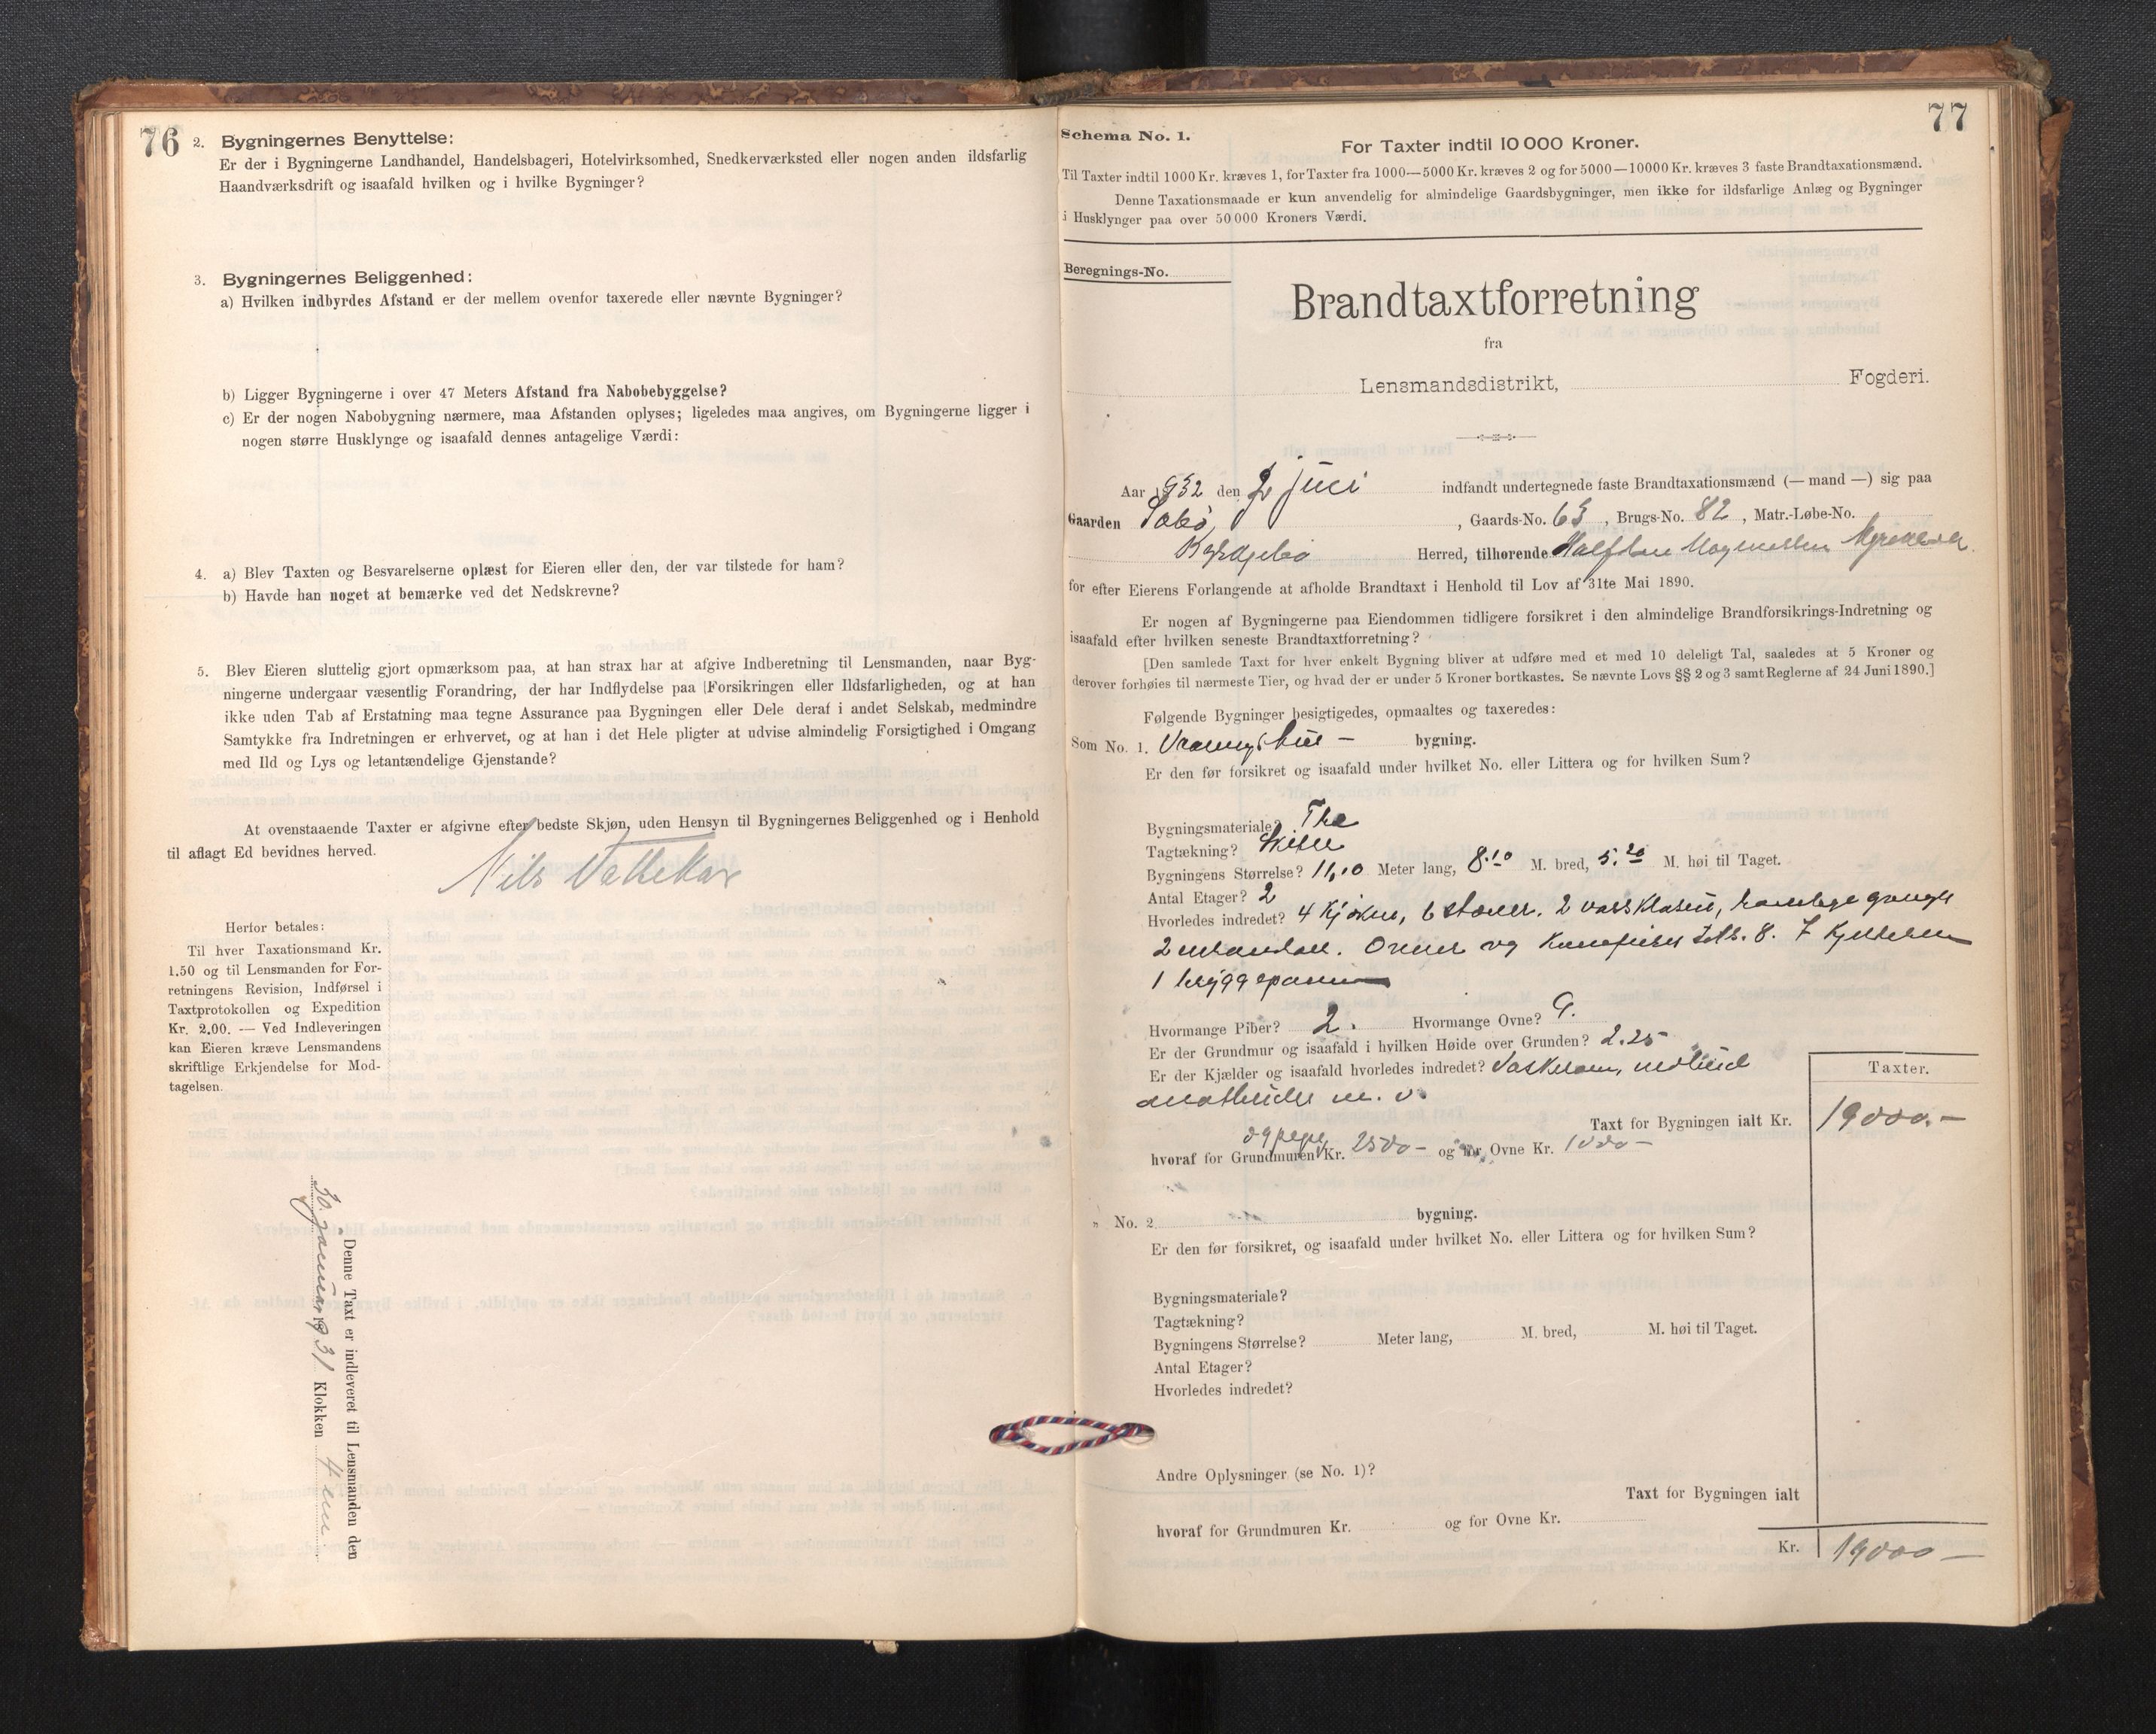 76
2. Bygningernes Benyttelse:
Er der i Bygningerne Landhandel, Handelsbageri, Hotelvirksomhed, Snedkerværksted eller nogen anden ildsfarlig
Haandværksdrift og isaafald hvilken og i hvilke Bygninger?
3. Bygningernes Beliggenhed:
a) Hvilken indbyrdes Afstand er der mellem ovenfor taxerede eller nævnte Bygninger?
b) Ligger Bygningerne i over 47 Meters Afstand fra Nabobebyggelse?
c) Er der nogen Nabobygning nærmere, maa Afstanden oplyses; ligeledes maa angives, om Bygningerne ligger i
nogen større Husklynge og isaafald dennes antagelige Værdi:
4. a) Blev Taxten og Besvarelserne oplæst for Eieren eller den, der var tilstede for ham?
b) Havde han noget at bemærke ved det Nedskrevne?
5. Blev Eieren sluttelig gjort opmærksom paa, at han strax har at afgive Indberetning til Lensmanden, naar Byg-
ningerne undergaar væsentlig Forandring, der har Indflydelse paa Forsikringen eller Ildsfarligheden, og at han
ikke uden Tab af Erstatning maa tegne Assurance paa Bygningen eller Dele deraf i andet Selskab, medmindre
Samtykke fra Indretningen er erhvervet, og at han i det Hele pligter at udvise almindelig Forsigtighed i Omgang
med Ild og Lys og letantændelige Gjenstande?
At ovenstaaende Taxter er afgivne efter bedste Skjøn, uden Hensyn til Bygningernes Beliggenhed og i Henhold
til aflagt Ed bevidnes herved.
Nils Vattekar
Herfor betales:
Til hver Taxationsmand Kr.
1.50 og til Lensmanden for For-
retningens Revision, Indførsel i
Taxtprotokollen og Expedition
Kr. 2.00. — Ved Indleveringen
kan Eieren kræve Lensmandens
skriftlige Erkjendelse for Mod-
tagelsen.
Denne Taxt er indleveret til Lensmanden den
30. januar 1931 Klokken 4 em
77
Schema No. 1.
For Taxter indtil 10 000 Kroner.
Til Taxter indtil 1000 Kr. kræves 1, for Taxter fra 1000—5000 Kr. kræves 2 og for 5000—10000 Kr. kræves 3 faste Brandtaxationsmænd.
Denne Taxationsmaade er kun anvendelig for almindelige Gaardsbygninger, men ikke for ildsfarlige Anlæg og Bygninger
i Husklynger paa over 50 000 Kroners Værdi.
Beregnings-No.
Brandtaxtforretning
fra
Lensmandsdistrikt, Fogderi.
Aar 1932 den 2 juni indfandt undertegnede faste Brandtaxationsmænd (— mand —) sig paa
Gaarden , Gaards-No. 63 , Brugs-No. 82 , Matr.-Løbe-No.
Herred, tilhørende Halfdan
for efter Eierens Forlangende at afholde Brandtaxt i Henhold til Lov af 31te Mai 1890.
Er nogen af Bygningerne paa Eiendommen tidligere forsikret i den almindelige Brandforsikrings-Indretning og
isaafald efter hvilken seneste Brandtaxtforretning?
[Den samlede Taxt for hver enkelt Bygning bliver at udføre med et med 10 deleligt Tal, saaledes at 5 Kroner og
derover forhøies til nærmeste Tier, og hvad der er under 5 Kroner bortkastes. Se nævnte Lovs §§ 2 og 3 samt Reglerne af 24 Juni 1890.]
Følgende Bygninger besigtigedes, opmaaltes og taxeredes:
Som No. 1. Vaaningshus — bygning.
Er den før forsikret og isaafald under hvilket No. eller Littera og for hvilken Sum?
Bygningsmateriale? Træ
Tagtækning? Skifer
Bygningens Størrelse? 11,10 Meter lang, 8.10 M. bred, 5.20 M. høi til Taget.
Antal Etager? 2
Hvorledes indredet? 4 kjøkner, 6 stover. 2
2 Ovner og 8. 7
1 bryggepanne
Hvormange Piber? 2. Hvormange Ovne? 9.
Er der Grundmur og isaafald i hvilken Høide over Grunden? 2.25
Er der Kjælder og isaafald hvorledes indredet? Vaskerom, vedbod
matboder m. v.
Taxter.
Taxt for Bygningen ialt Kr. 19000.—
og pipe
hvoraf for Grundmuren Kr. 2500 — og for Ovne Kr. 1000 —
" No. 2 bygning.
Er den før forsikret, og isaafald under hvilket No. eller Littera og for hvilken Sum?
Bygningsmateriale?
Tagtækning?
Bygningens Størrelse? Meter lang, M. bred, M. høi til Taget.
Antal Etager?
Hvorledes indredet?
Andre Oplysninger (se No. 1)?
Taxt for Bygningen ialt
hvoraf for Grundmuren Kr. og for Ovne Kr.
Kr. 19000 —